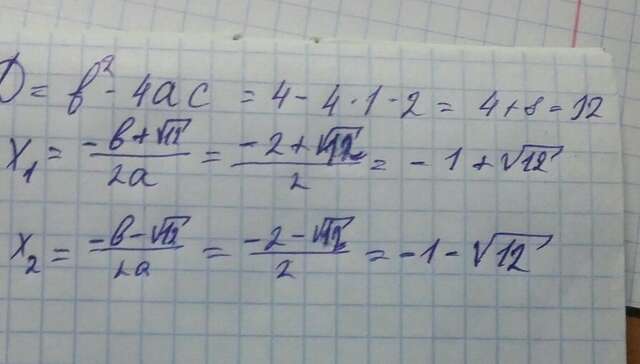 D = b² - 4ac = 4 - 4 · 1 · - 2 = 4 + 8 = 12
x₁ = (-b + √12)/(2a) = (-2 + √12)/2 = - 1 + √12
x₂ = (-b - √12)/(2a) = (-2 - √12)/2 = - 1 - √12